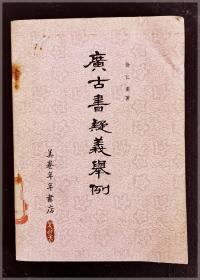 徐仁甫著
廣古書疑義舉例
美卷年年書店